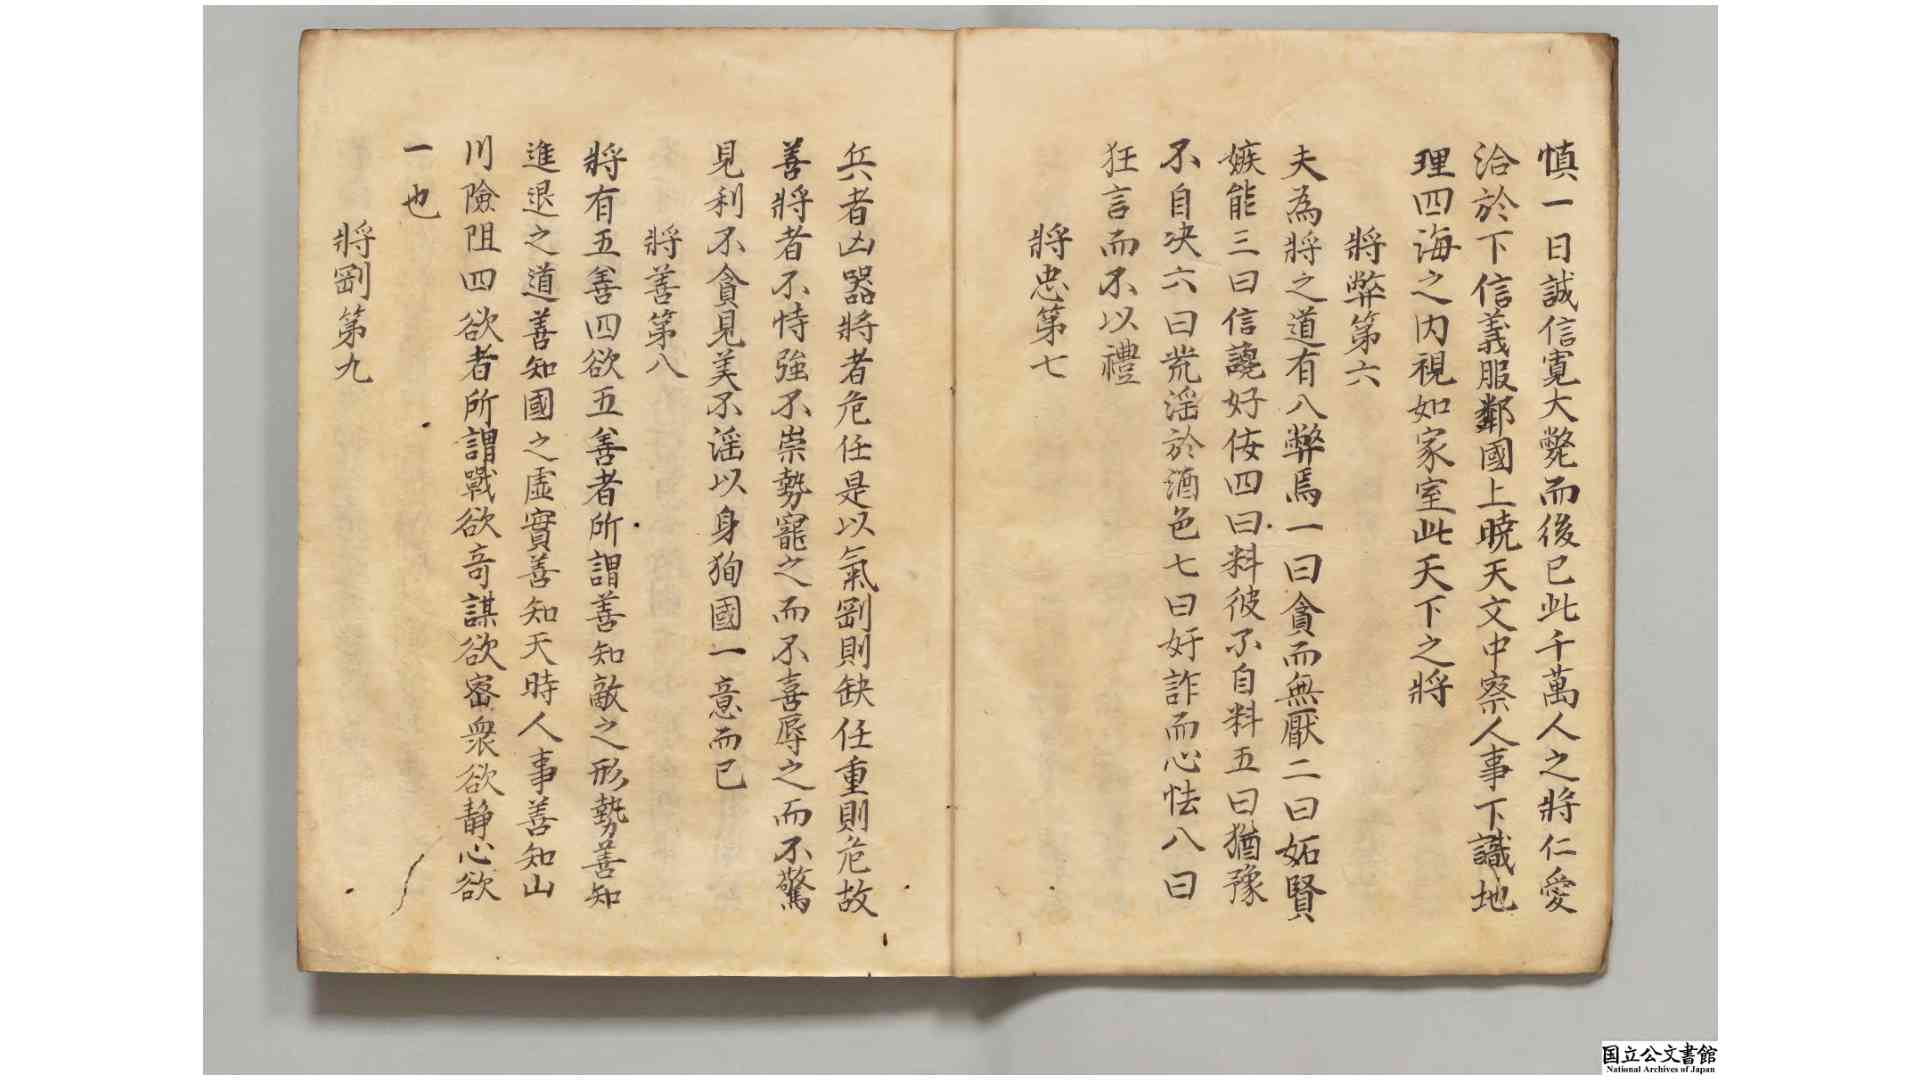 慎一日誠信寛大斃而後已此千萬人之將仁愛
洽於下信義服鄰國上曉天文中察人事下識地
理四海之内視如家室此天下之將
將弊第六
夫為將之道有八弊焉一曰貪而無厭二曰妬賢
嫉能三曰信讒好佞四曰料彼不自料五曰猶豫
不自决六曰荒淫於酒色七曰奸詐而心怯八曰
狂言而不以禮
將忠第七
兵者凶器將者危任是以氣剛則缺任重則危故
善將者不恃強不崇勢寵之而不喜辱之而不驚
見利不貪見美不淫以身狥國一意而已
將善第八
將有五善四欲五善者所謂善知敵之形勢善知
進退之道善知國之虛實善知天時人事善知山
川險阻四欲者所謂戰欲奇謀欲密衆欲静心欲
一也
將剛第九
国立公文書館
National Archives of Japan